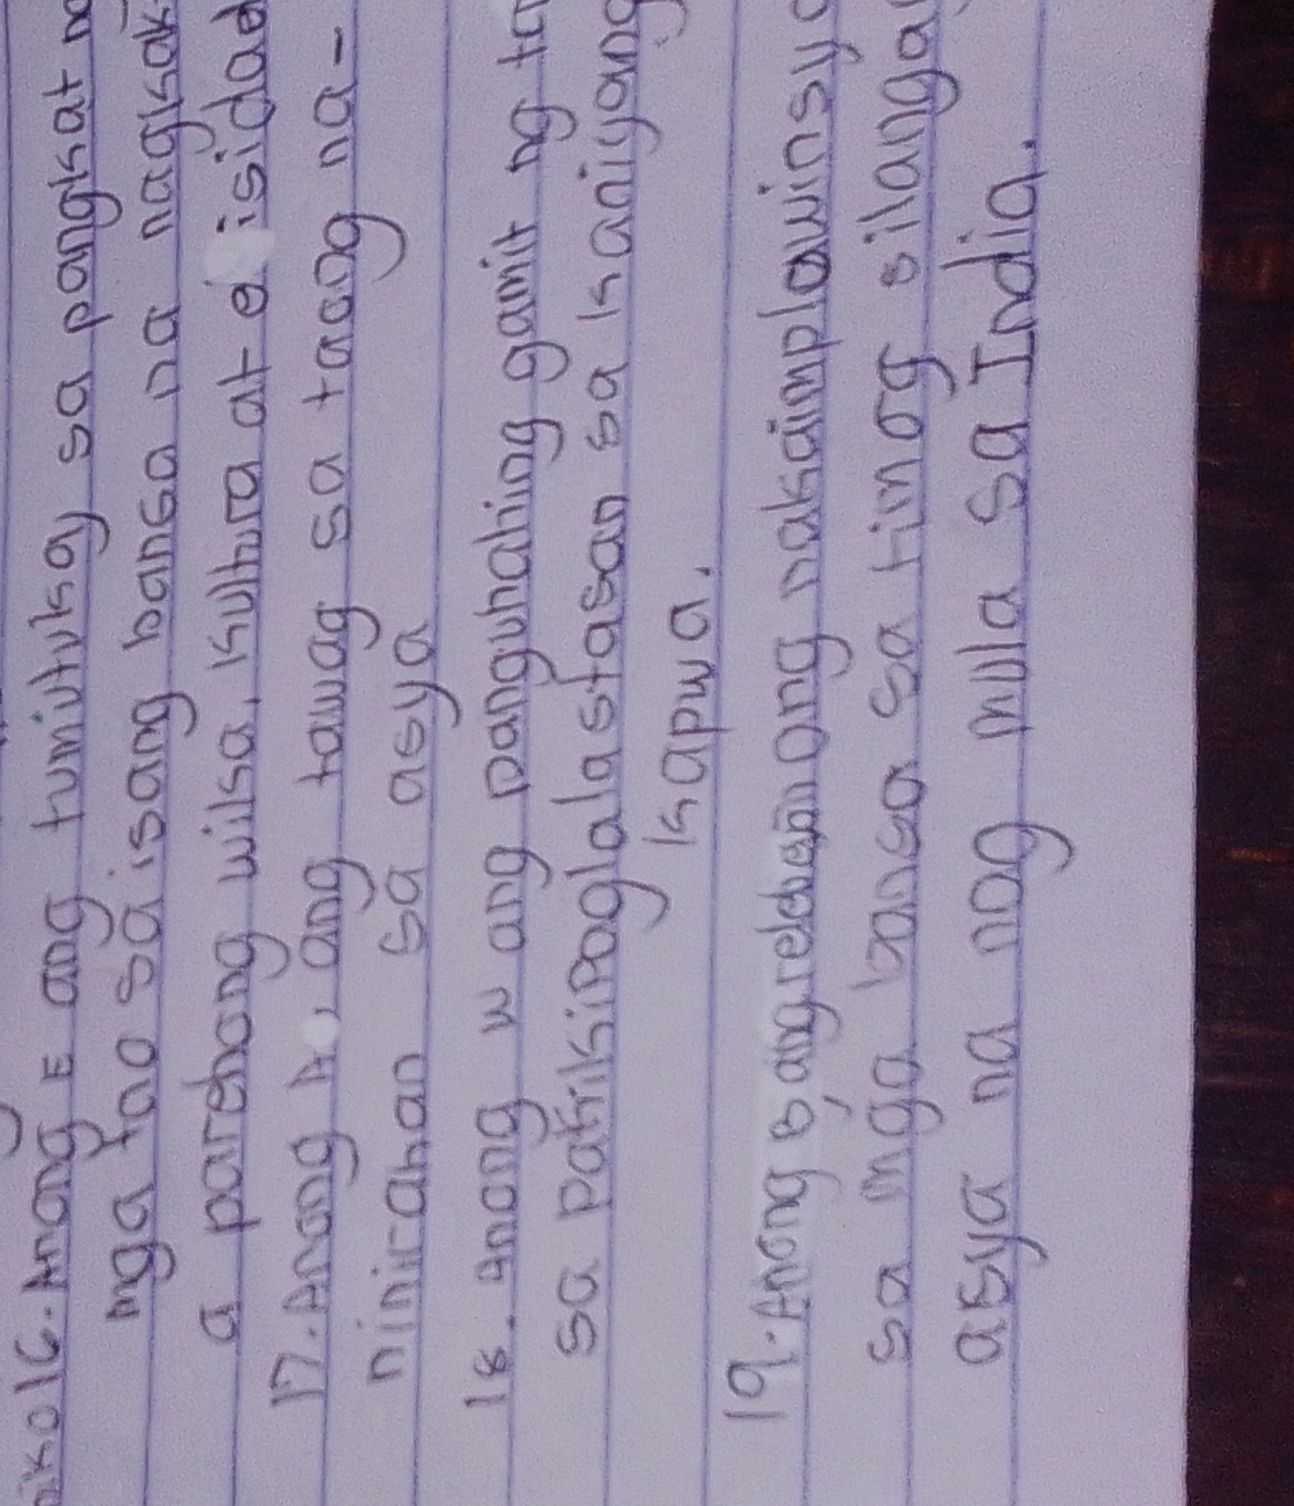 16. Anong E ang tumutukoy sa pangkat n
mga tao sa isang bansa na nagkak
a parehong wika, kultura at e isidad
17. Anong A, ang tawag sa taong na-
ninirahan sa asya
18. anong w ang panguhaling gamit ng ta
sa patikipaglalastasan sa kaniyang
kapwa.
19. Anong B ang ong nakaimplawinsya
sa mga bansa sa timog silanga
asya na nag mula sa India.